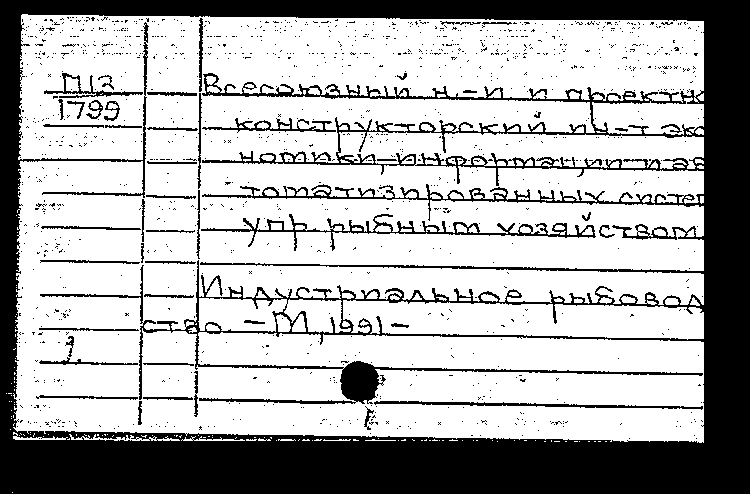 П13 Всесоюзный н.-и и проектно
1799 конструкторский ин-т эко
номики, информации и ав
томатизированных систем
упр. рыбным хозяйством.
Индустриальное рыбовод
ство. - М, 1991 -
1.